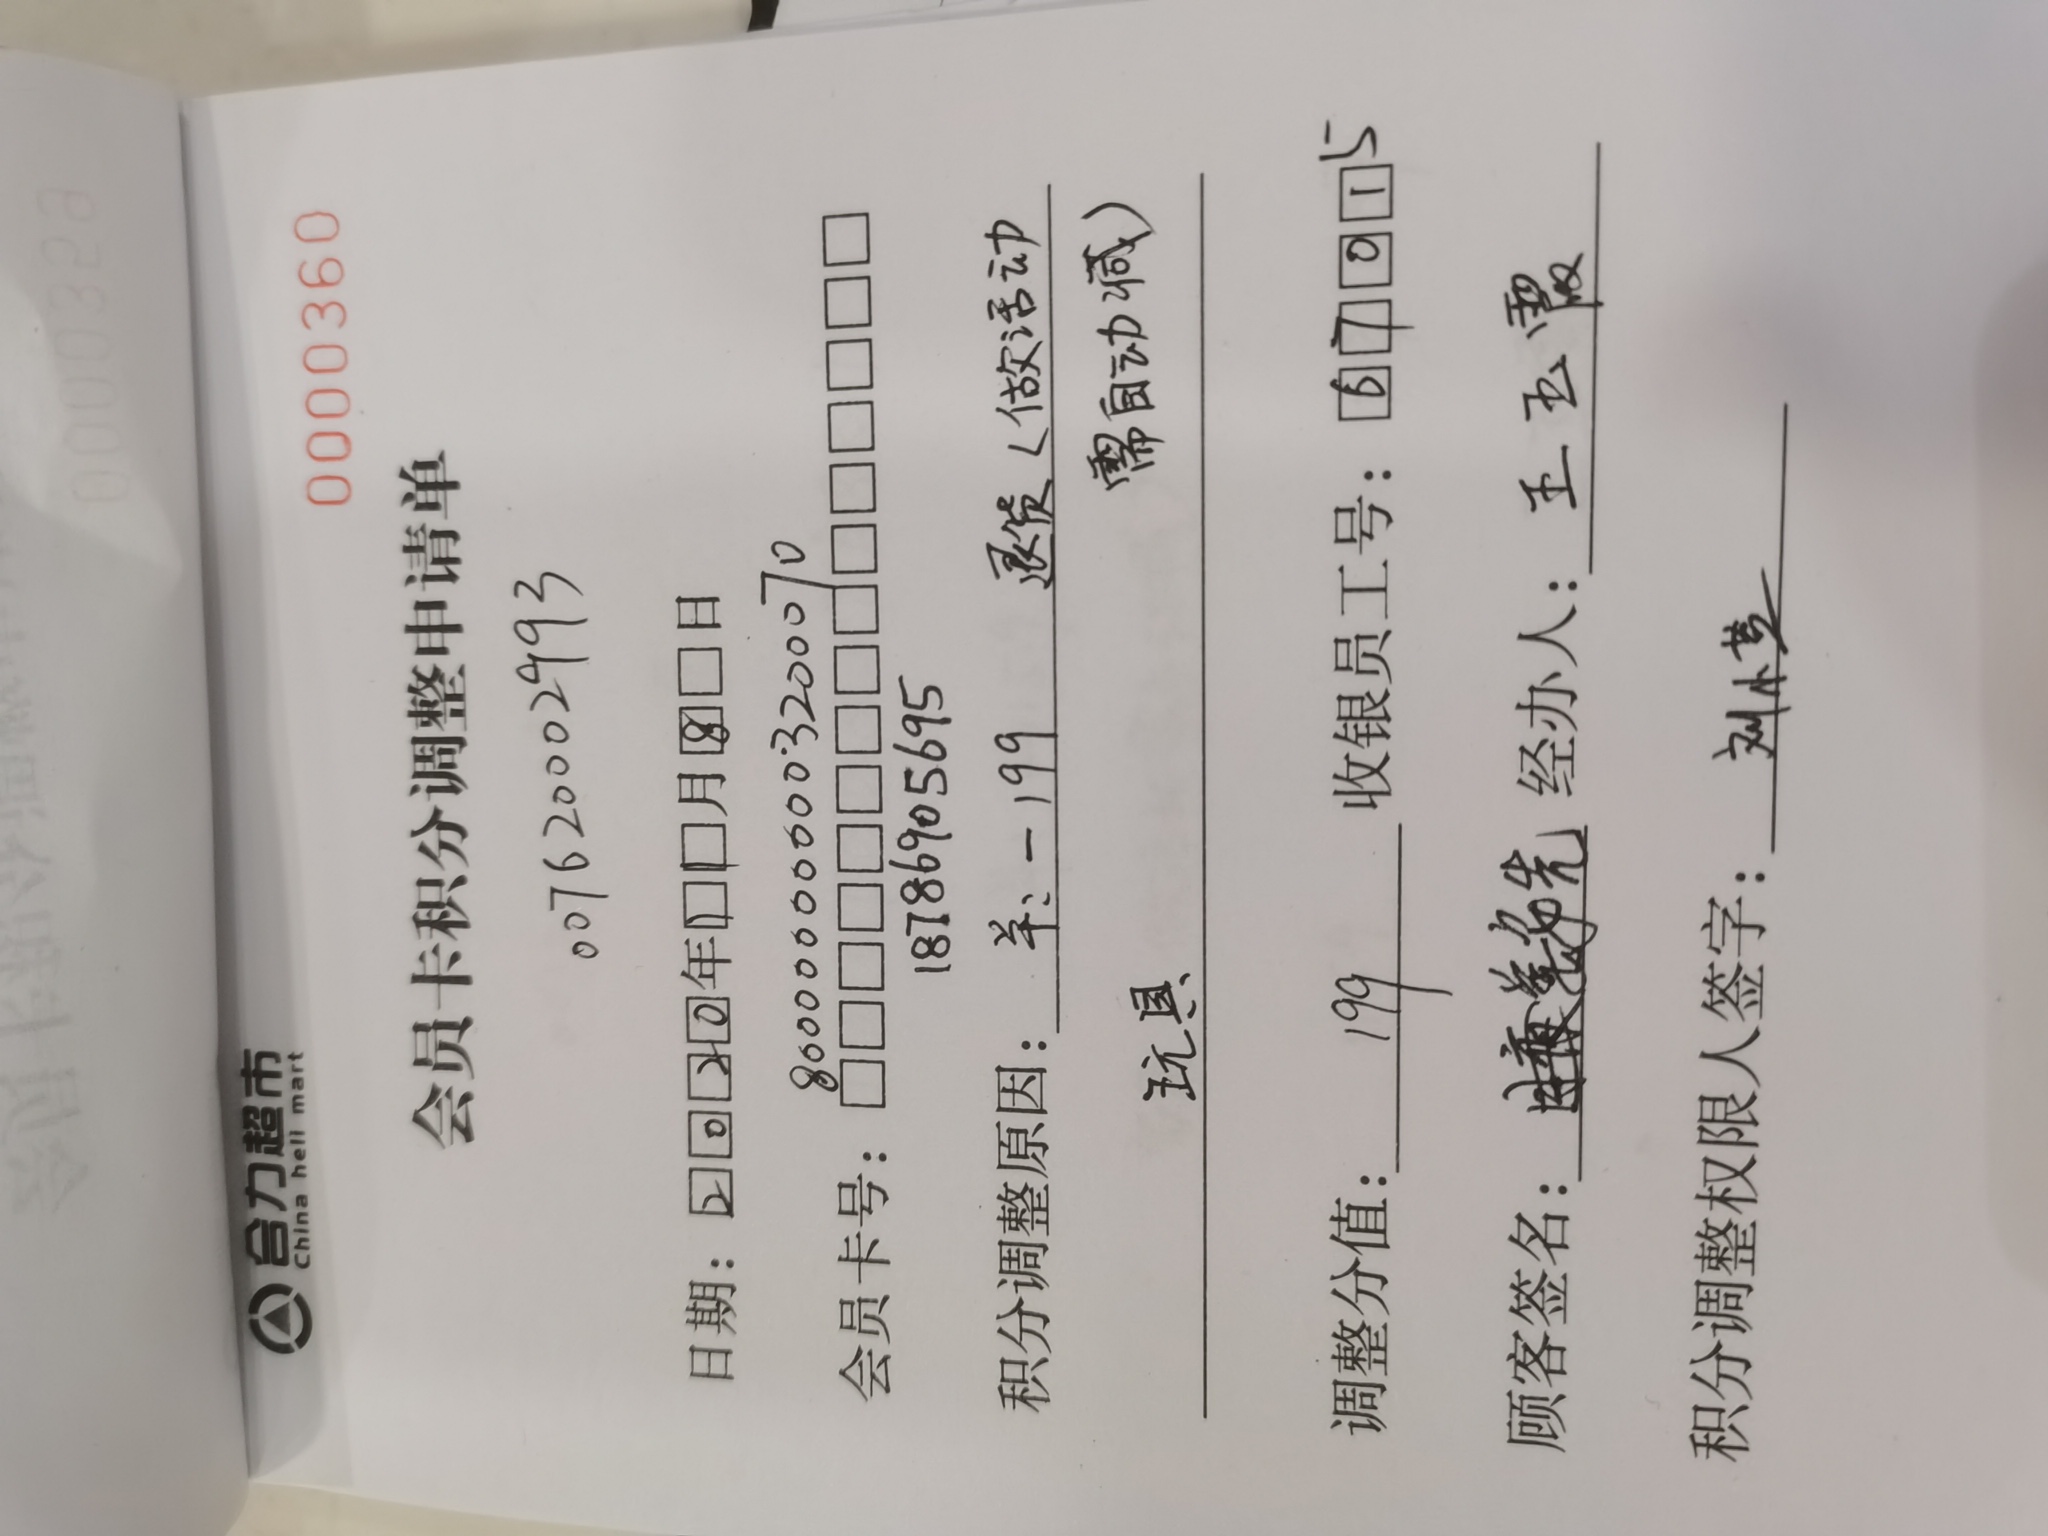 合力超市
China heli mart
0000360
会员卡积分调整申请单
0076200002993
日期：2020年11月8日
8000000000032000070
会员卡号：
18786905695
积分调整原因：羊：-199 退货（做活动
玩具 需自动减）
调整分值：199 收银员工号：67015
顾客签名： 经办人：王玉霞
积分调整权限人签字：